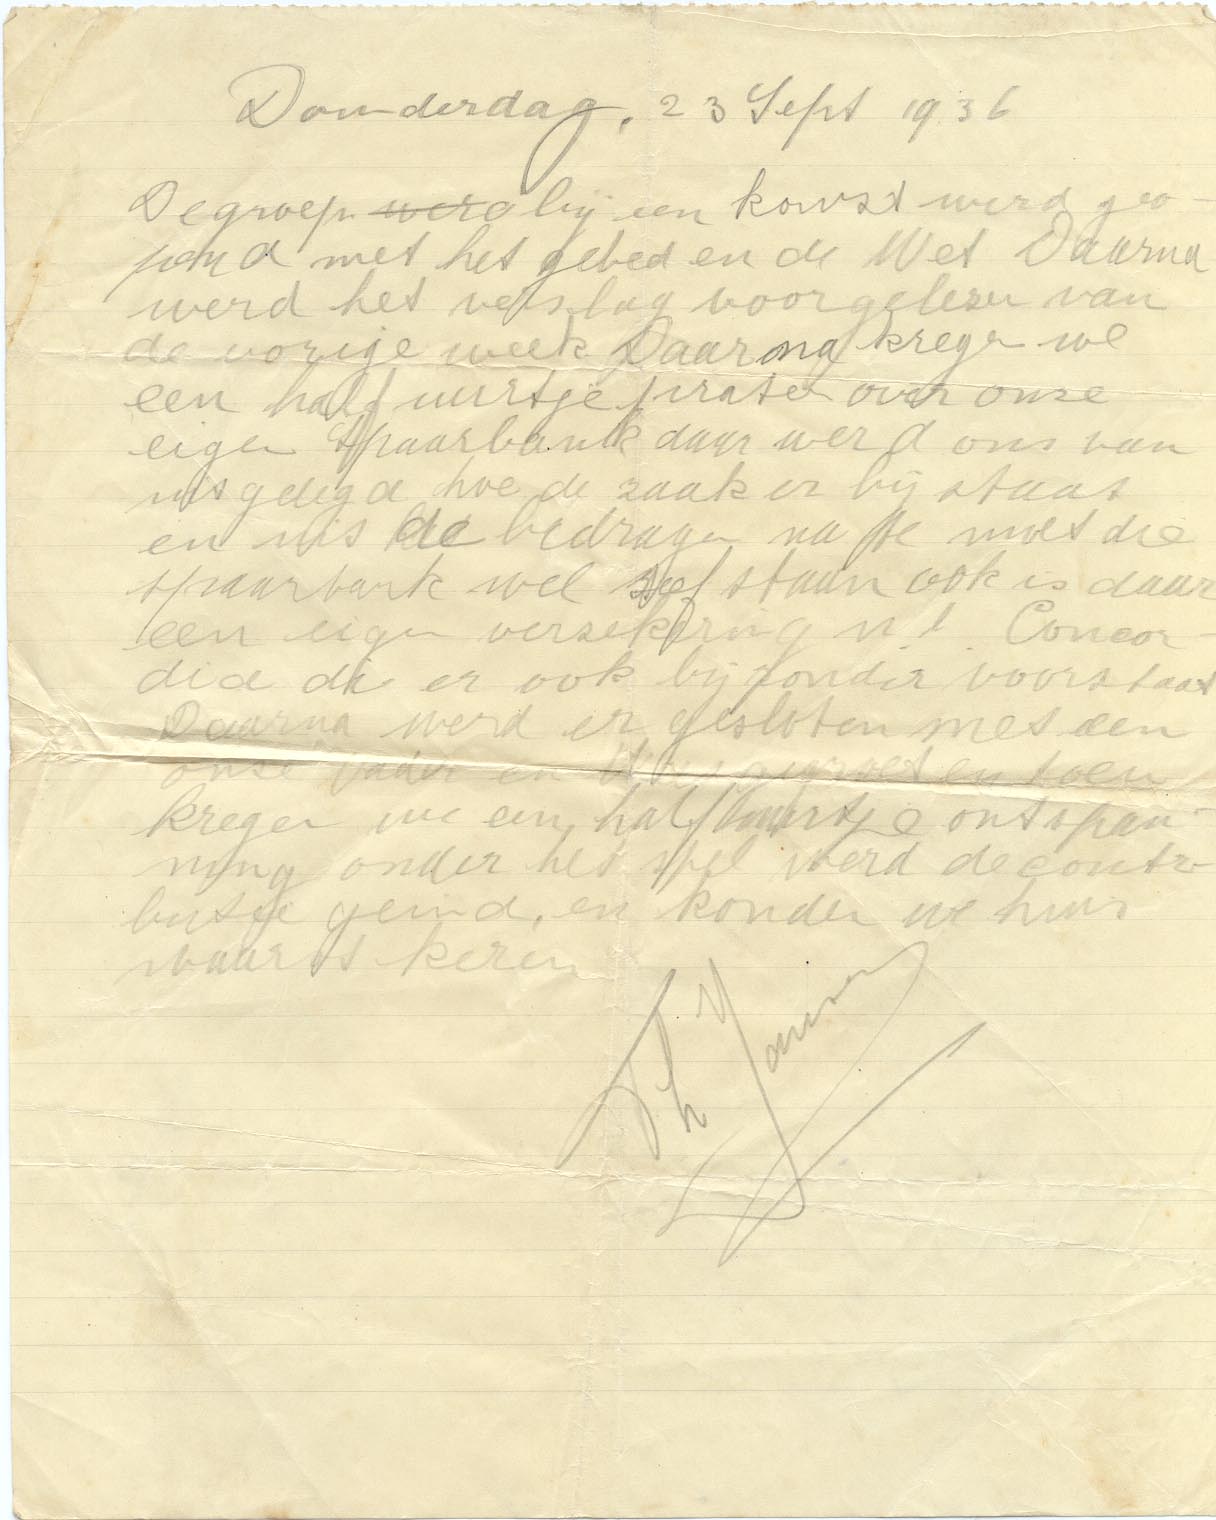 Donderdag, 23 Sept 1936
De groep werd bij een komst werd geo-
pend met het gebed en de Wet Daarna
werd het verslag voorgelezen van
de vorige week Daarna kregen we
een half uurtje praten over onze
eigen Spaarbank daar werd ons van
uitgelegd hoe de zaak er bij staat
en uit de bedragen na te moet die
spaarbank wel stef staan ook is daar
een eigen verzekering n.l. Concor-
dia die er ook bijzonder voorstaat
Daarna werd er gesloten met een
onze vader en Wees gegroet en toen
kregen we een half uurtje ontspan-
ning onder het spel werd de contri-
butie geind, en konden we huis
waarts keren
Th Janssen